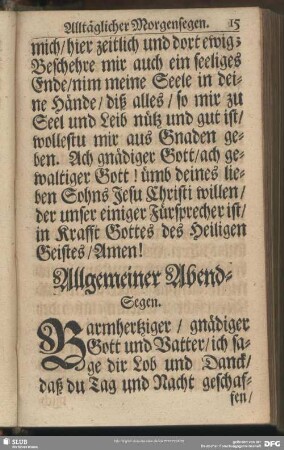 Alltäglicher Morgensegen. 15
mich/hier zeitlich und dort ewig;
Beschehre mir auch ein seeliges
Ende/nim meine Seele in dei-
ne Hände/diß alles/so mir zu
Seel und Leib nütz und gut ist/
wollestu mir aus Gnaden ge-
ben. Ach gnädiger Gott/ach ge-
waltiger Gott! ümb deines lie-
ben Sohns Jesu Christi willen/
der unser einiger Fürsprecher ist/
in Krafft Gottes des Heiligen
Geistes/Amen!
Allgemeiner Abend-
Segen.
Barmhertziger/gnädiger
Gott und Vatter/ich sa-
ge dir Lob und Danck/
daß du Tag und Nacht geschaf-
fen/
SLUB
DFG